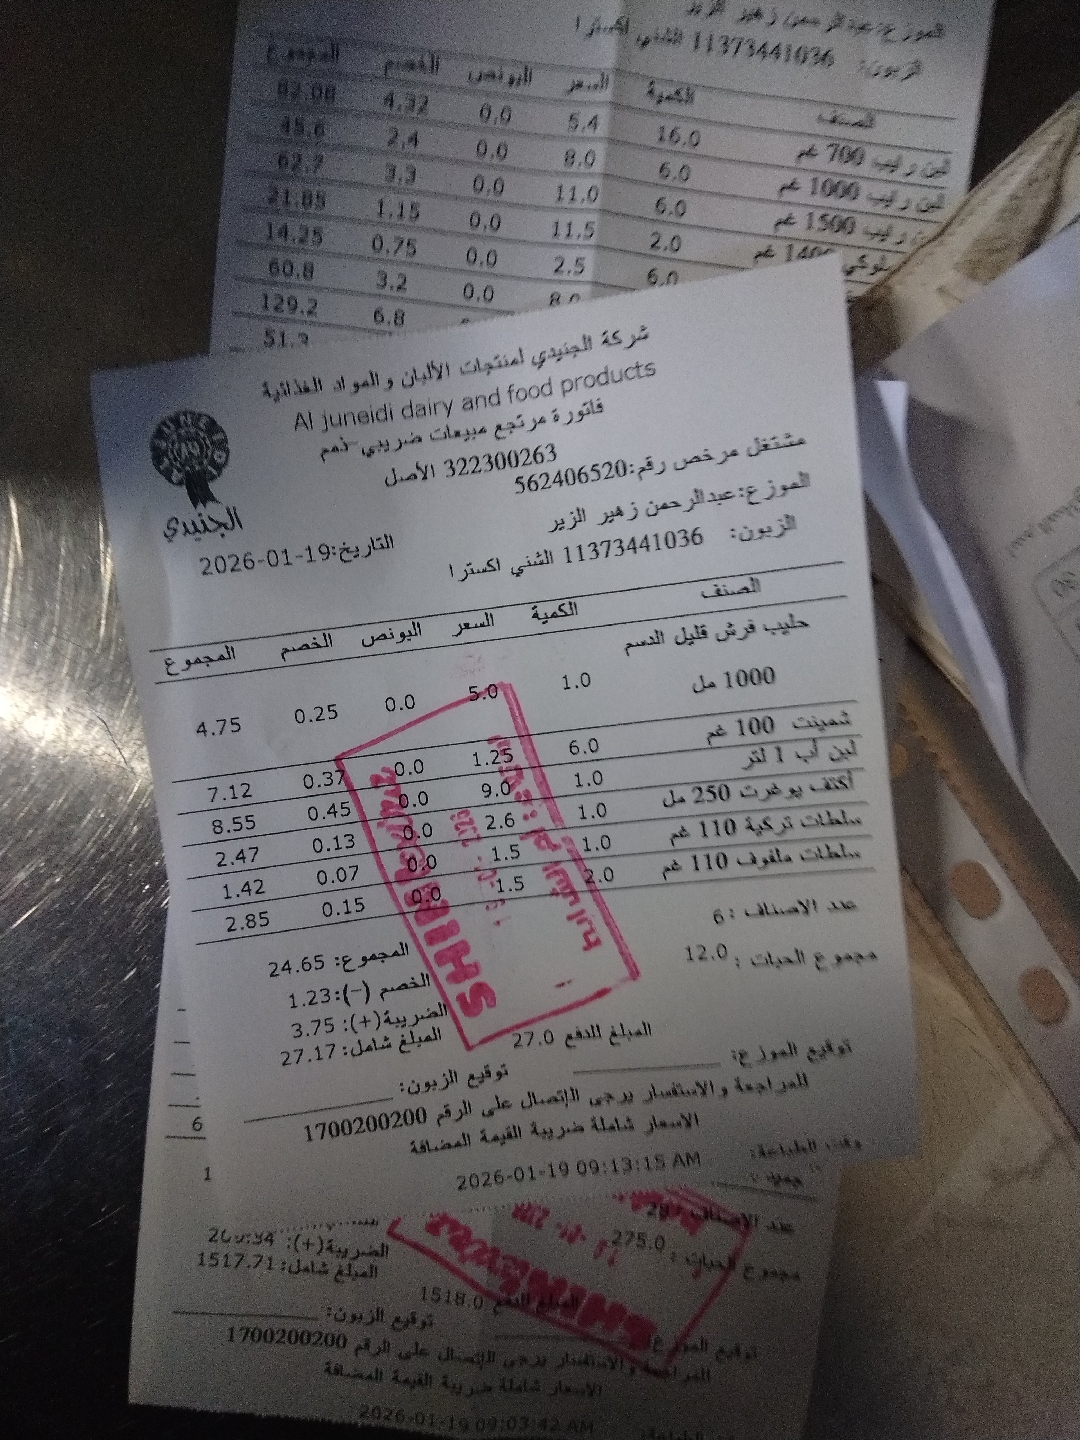 الموزع:عبدالرحمن زهير الزير
الزبون: 11373441036 الشني اكسترا
الصنف الكمية السعر البونص الخصم المجموع
لبن رايب 700 غم 16.0 5.4 0.0 4.32 82.08
لبن رايب 1000 غم 6.0 8.0 0.0 2.4 45.6
رايب 1500 غم 6.0 11.0 0.0 3.3 62.7
2.0 11.5 0.0 1.15 21.85
6.0 2.5 0.0 0.75 14.25
8.0 0.0 3.2 60.8
6.8 129.2
51.3
شركة الجنيدي لمنتجات الألبان والمواد الغذائية
Al juneidi dairy and food products
فاتورة مرتجع مبيعات ضريبي-ذمم
322300263 الأصل
مشتغل مرخص رقم:562406520
الموزع:عبدالرحمن زهير الزير
الجنيدي
التاريخ:2026-01-19
الزبون: 11373441036 الشني اكسترا
الصنف الكمية السعر البونص الخصم المجموع
حليب فرش قليل الدسم
1000 مل 1.0 5.0 0.0 0.25 4.75
شمينت 100 غم 6.0 1.25 0.0 0.37 7.12
لبن أب 1 لتر 1.0 9.0 0.0 0.45 8.55
أكتف يوغرت 250 مل 1.0 2.6 0.0 0.13 2.47
سلطات تركية 110 غم 1.0 1.5 0.0 0.07 1.42
سلطات ملفوف 110 غم 2.0 1.5 0.0 0.15 2.85
عدد الاصناف : 6
مجموع الحبات : 12.0
المجموع: 24.65
الخصم (-):1.23
الضريبة(+): 3.75
المبلغ شامل: 27.17
المبلغ للدفع 27.0
توقيع الموزع:
توقيع الزبون:
للمراجعة والاستفسار يرجى الإتصال على الرقم 1700200200
الاسعار شاملة ضريبة القيمة المضافة
وقت الطباعة: 2026-01-19 09:13:15 AM
6
1
عدد الاصناف : 29
مجموع الحبات : 275.0
الضريبة(+):
المبلغ شامل: 1517.71
المبلغ للدفع 1518.0
توقيع الموزع:
توقيع الزبون:
للمراجعة والاستفسار يرجى الإتصال على الرقم 1700200200
الاسعار شاملة ضريبة القيمة المضافة
2026-01-19 09:03:42 AM